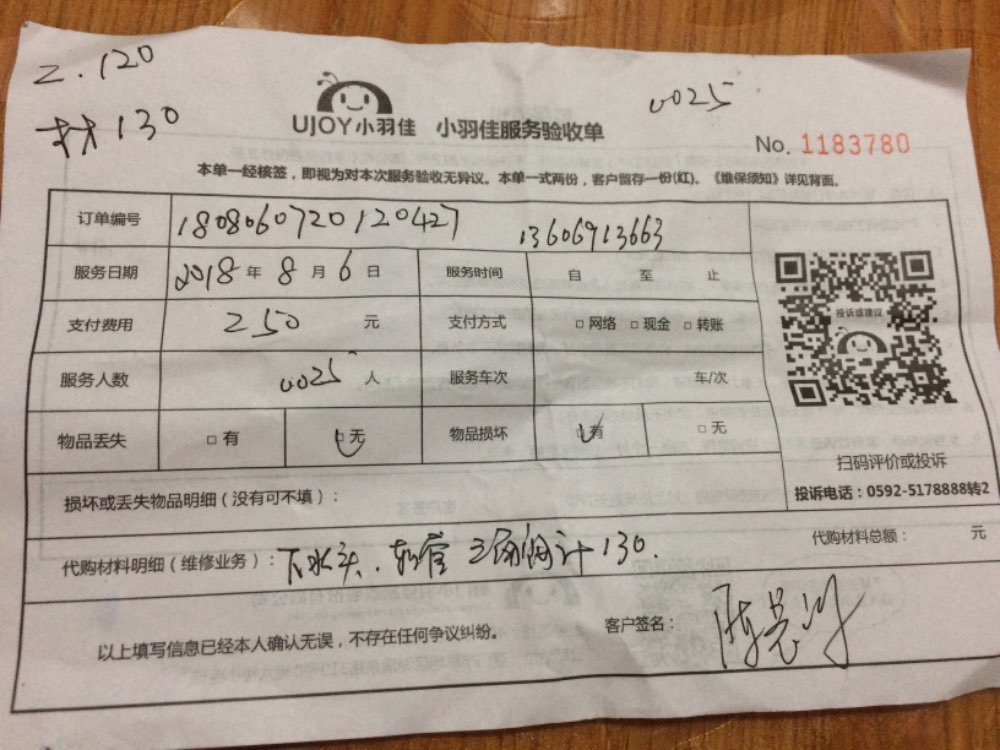 工.120
材130
0025
UJOY小羽佳 小羽佳服务验收单
No. 1183780
本单一经核签，即视为对本次服务验收无异议。本单一式两份，客户留存一份(红)。《维保须知》详见背面。
订单编号 180860720120427 13606913663
服务日期 2018年8月6日 服务时间 自 至 止
支付费用 250 元 支付方式 □网络 □现金 □转账
服务人数 0025人 服务车次 车/次
物品丢失 □有 □无 物品损坏 □有 □无
投诉或建议
扫码评价或投诉
投诉电话：0592-5178888转2
损坏或丢失物品明细（没有可不填）：
代购材料明细（维修业务）：下水头.软管 三角阀计130.
代购材料总额： 元
以上填写信息已经本人确认无误，不存在任何争议纠纷。
客户签名：